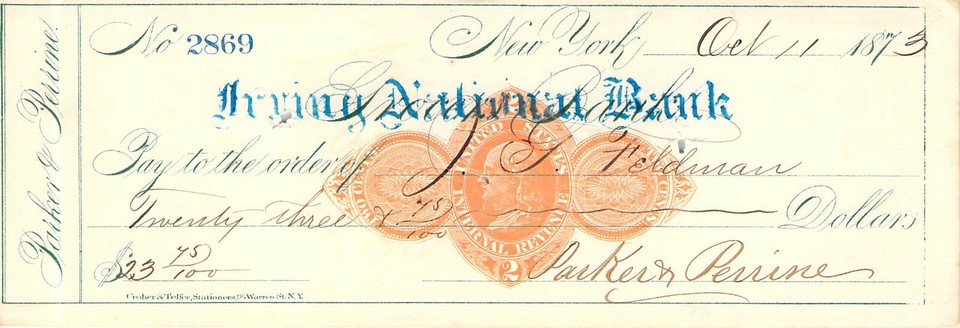 Parker & Perrine.
No 2869 New York Oct 11 1873
Irving National Bank
Grocers Bank
Pay to the order of J. G. Feldman
Twenty three & 75/100 Dollars
UNITED STATES
INTERNAL REVENUE
2
$23 75/100 Parker & Perrine
Croker & Telfer, Stationers, Warren St. N.Y.